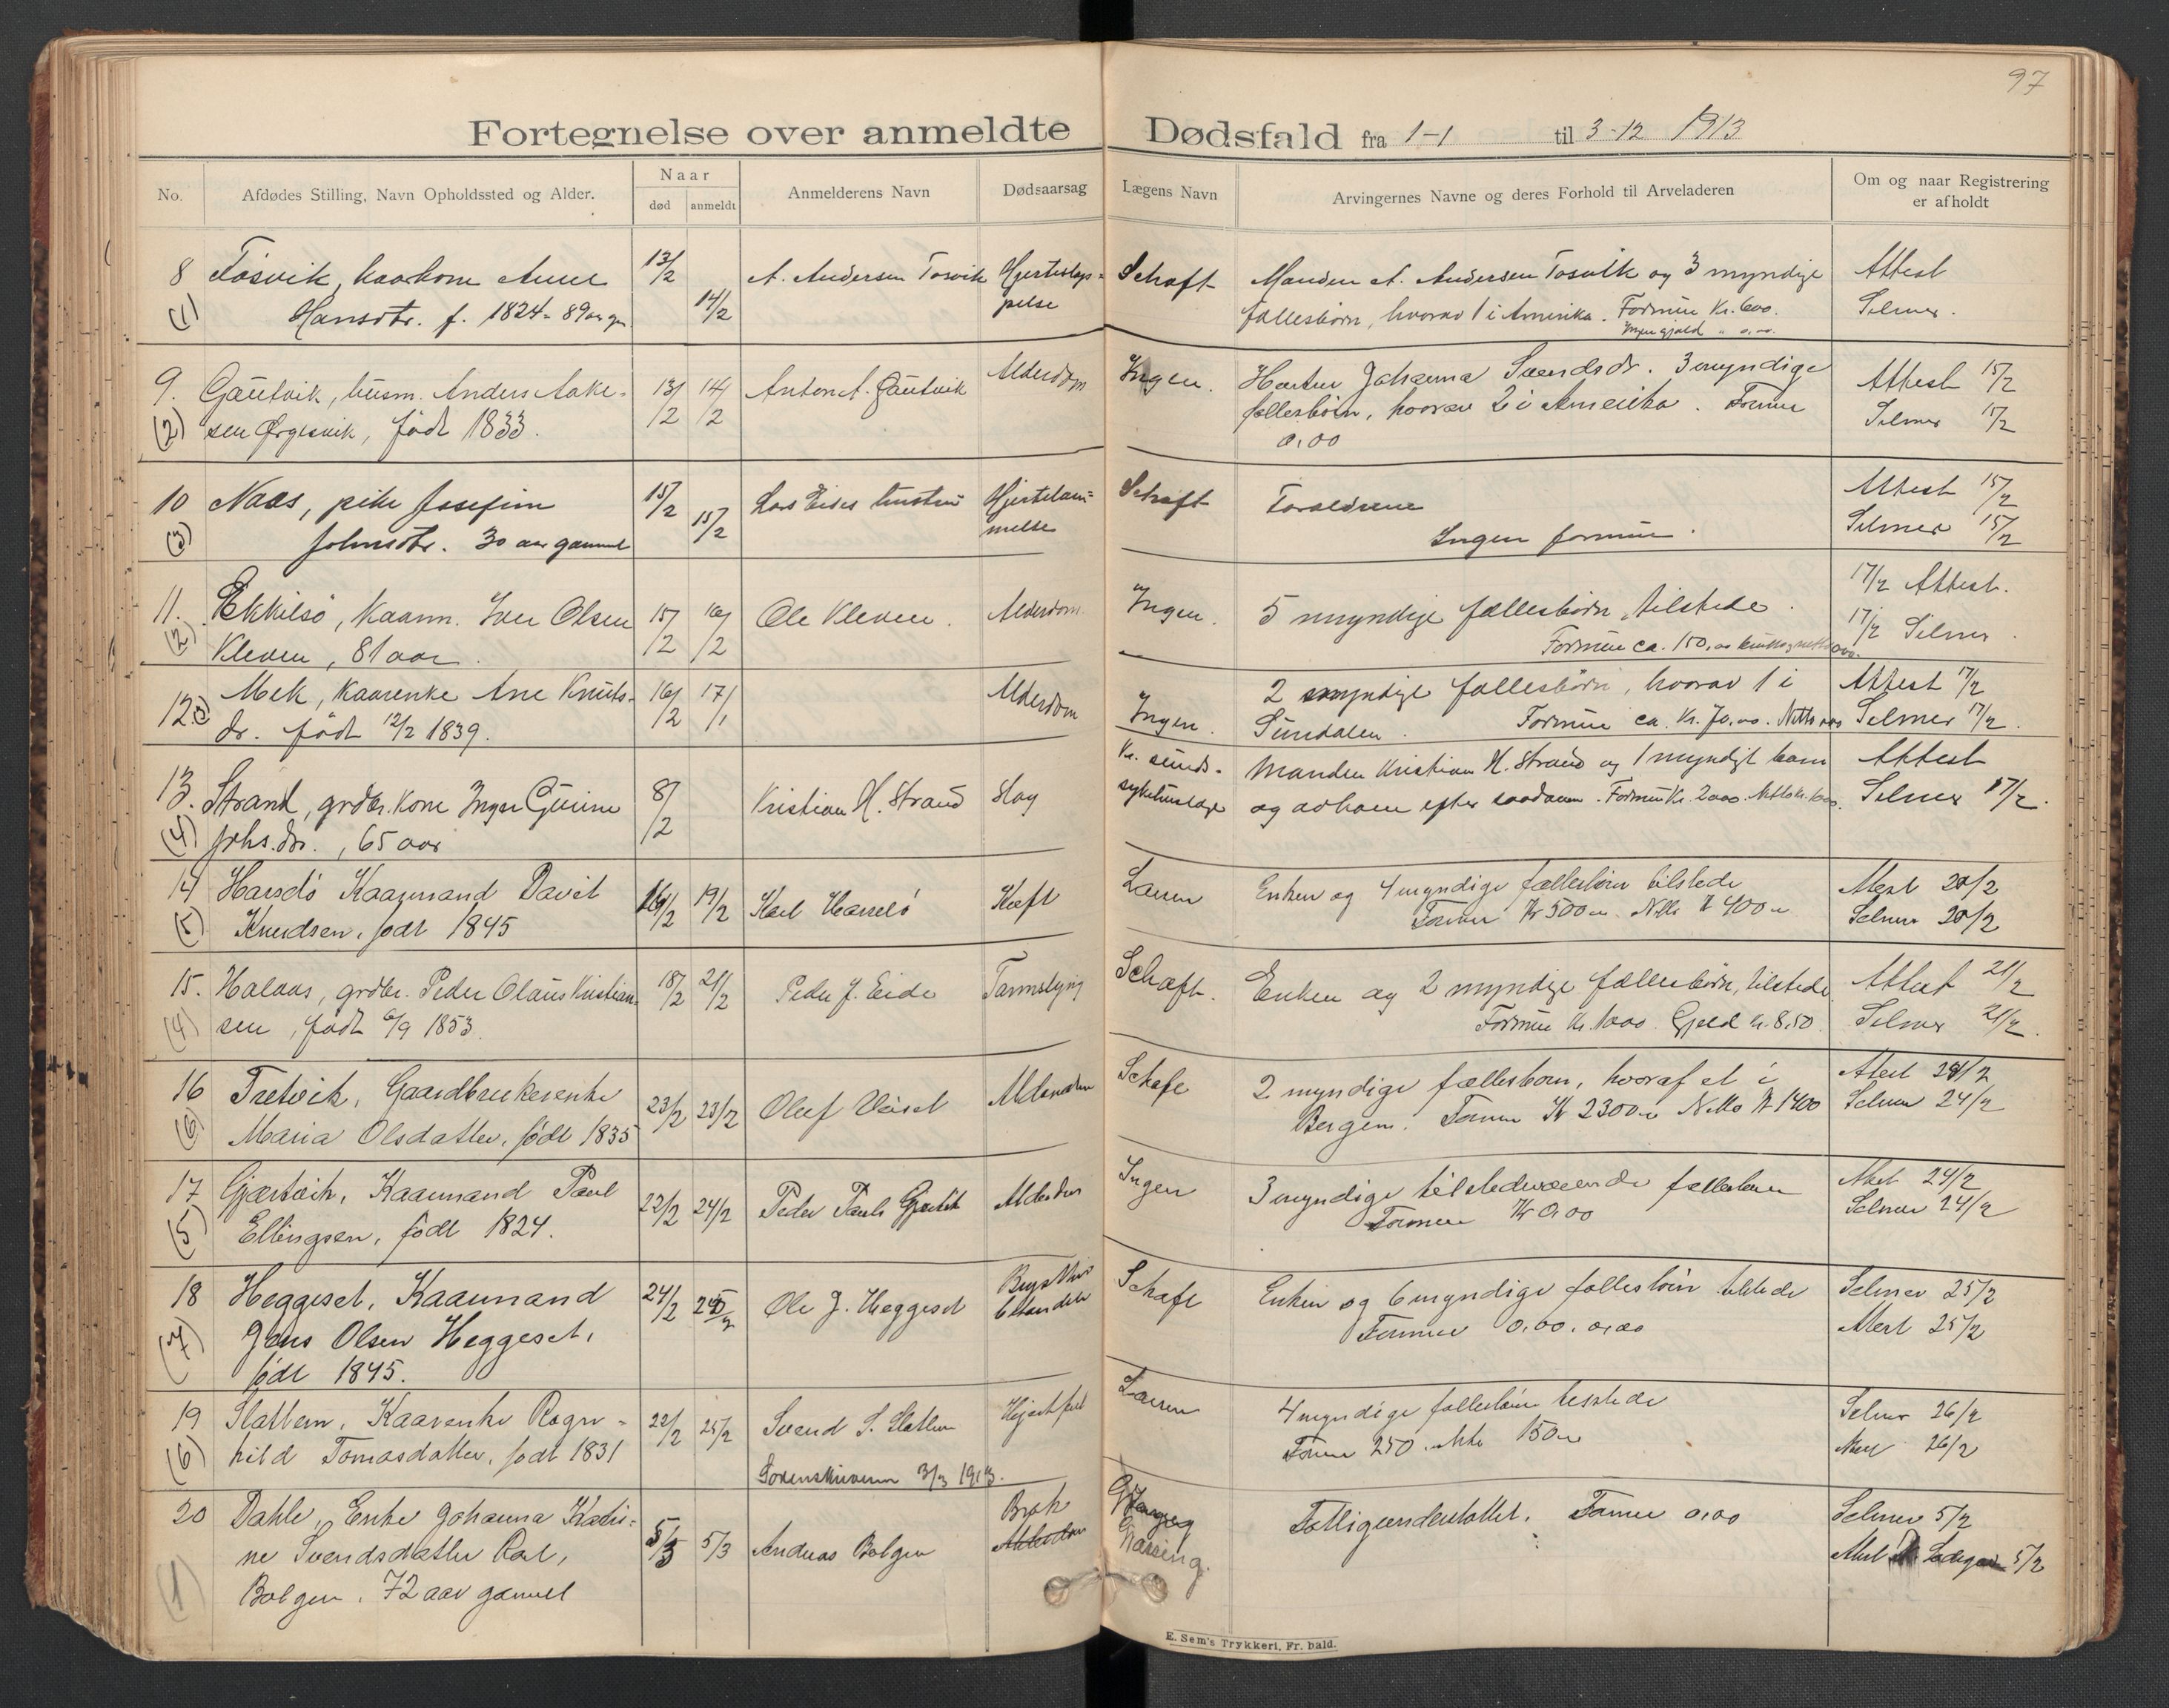 97
Fortegnelse over anmeldte Dødsfald fra 1-1 til 3-12 1913
No.
Afdødes Stilling, Navn Opholdssted og Alder.
Naar
død
anmeldt
Anmelderens Navn
Dødsaarsag
Lægens Navn
Arvingernes Navne og deres Forhold til Arveladeren
Om og naar Registrering
er afholdt
8 Tøsvik, kaarkone Anne 13/2 A. Andersen Tøsvik Hjerteslap= Schaft Manden A. Andersen Tosvik og 3 myndige Attest
(1) Hansdtr. f. 1824 - 89 aar gn. 14/2 pelse fællesbørn, hvorav 1 i Amerika. Formue Kr. 600. Selmer.
Ingen gjæld
9. Gautvik, husm. Anders Aake- 13/2 14/2 Anton A. Gautvik Alderdom Ingen. Johanna Svendsdr. 3 myndige Attest 15/2
(2) sen Ørgesvik, født 1833. fællesbørn, hvorav 2 i Amerika. Formue Selmer 17/2
0,00
10 Naas, pike Josefine 15/2 Lars Eides hustru Hjertelam= Schaft Forældrene Attest 15/2
(3) Johnsdtr. 30 aar gammel 15/2 melse Ingen formue. Selmer 15/2
11. Ekkilsö, Kaarm. Iver Olsen 15/2 16/2 Ole Kleven. Alderdom. Ingen. 5 myndige fællesbørn, tilstede. 17/2 Attest.
(2) Kleven, 81 aar. Formue ca. 150,00 17/2 Selmer.
12 (3) Mek, Kaarenke Ane Knuts- 16/2 17/1 Alderdom Ingen. 2 myndige fællesbørn, hvorav 1 i Attest 17/2
dr. født 12/2 1839. Sundalen. Formue ca. Kr. 70,00. Netto 0,00 Selmer 17/2.
13. Strand, grdbr. kone Inger Gurine 8/2 Kristian H. Strand Slag Kr. sunds- Manden Kristian H. Strand og 1 myndigt barn Attest
(4) Johs.dr., 65 aar sykehuslæge og avkom efter saadanne. Formue Kr. 2000. Netto kr. 1000. Selmer 17/2.
14 Harsdö Kaarmand Davit 16/2 19/2 Karl Harselö Kræft Lauen Enken og 4 myndige fællesbørn tilstede Attest 20/2
(5) Knudsen, født 1845 Formue Kr 500 Netto Kr 400 Selmer 20/2
15. Halaas, grdbr. Peder Olaus Kristian- 18/2 21/2 Peder J. Eide Tarmslyng Schaft. Enken og 2 myndige fællesbørn, tilstede. Attest 21/2
(4) sen, født 6/9 1853. Formue Kr. 1000. Gjæld kr. 850. Selmer 21/2.
16 Tretvik, Gaardbrukerenke 23/2 23/2 Oluf Alderdom Schaft 2 myndige fællesbørn, hvoraf et i Attest 24/2
(6) Maria Olsdatter, født 1835 Bergen. Formue Kr 2300 Netto Kr 1400 Selmer 24/2
17 Gjærtvik, Kaarmand Paul 22/2 24/2 Peder Pauls Gjærtvik Alderdom Ingen 3 myndige tilstedeværende fællesbørn Attest 24/2
(5) Ellingsen, født 1824. Formue Kr 0,00 Selmer 24/2
18 Heggeset, Kaarmand 24/2 Ole J. Heggeset Schaft Enken og 6 myndige fællesbørn tilstede Selmer 25/2
(7) Jens Olsen Heggeset, Formue 0,00. 0,00 Attest 25/2
født 1845.
19 Slattem, Kaarenke Ragn- 22/2 25/2 Svend S. Slattem Hjertefeil Lauen 4 myndige fællesbørn tilstede Selmer 26/2
(6) hild Tomasdatter, født 1831 Formue 250. netto 150 Attest 26/2
Sorenskriveren 3/3 1913.
20 Dahle, Enke Johanna Katri= 5/3 5/3 Andreas Bolgen Brok Fattigunderstøttet. Formue 0,00 Selmer 5/2
ne Svendsdatter Alderdom Attest 5/2
(1) Bolgen, 72 aar gammel
E. Sem's Trykkeri, Fr. hald.